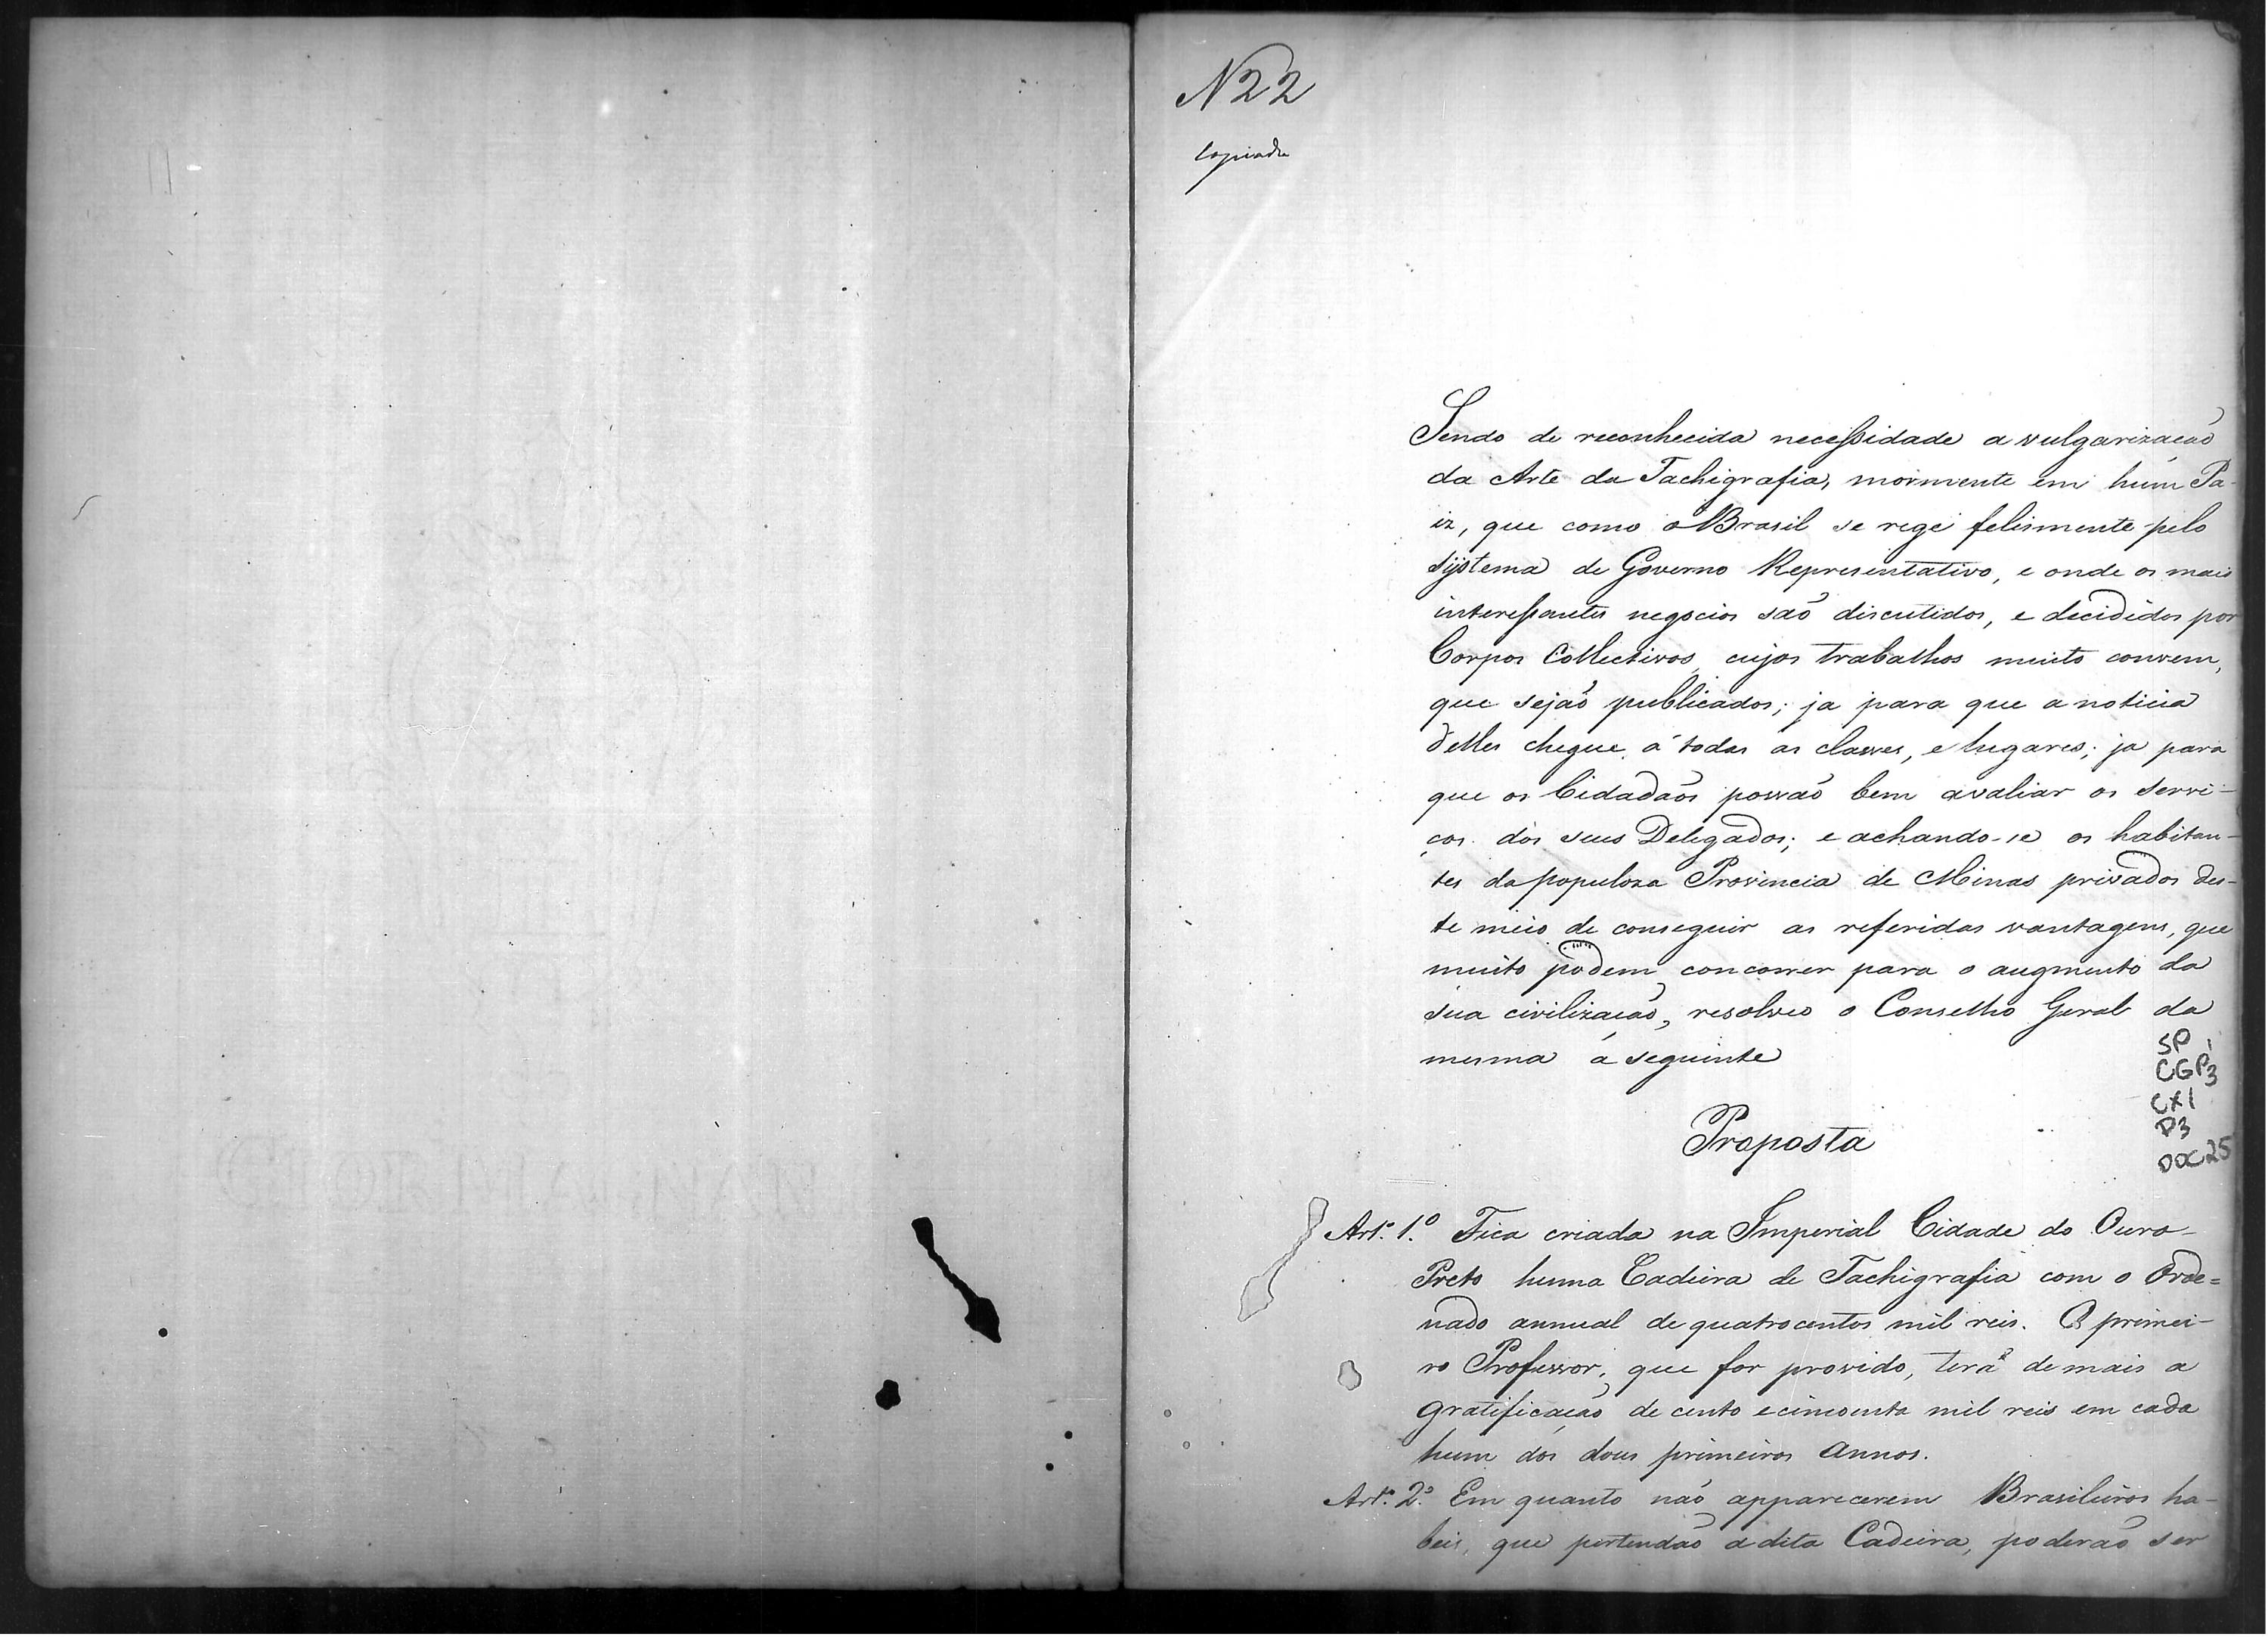 N 22
Copiada
Sendo de reconhecida necessidade a vulgarização
da Arte da Tachigrafia, mormente em hum Pa-
iz, que como o Brasil se rege felismente pelo
systema de Governo Representativo, e onde os mais
interessantes negocios são discutidos, e decididos por
Corpos Collectivos, cujos trabalhos muito convem,
que sejão publicados; ja para que a noticia
delles chegue á todas as classes, e lugares; ja para
que os Cidadãos possão bem avaliar os servi-
ços dos seus Delegados; e achando-se os habitan-
tes da populoza Provincia de Minas privados des-
te meio de conseguir as referidas vantagens, que
muito podem concorrer para o augmento da
sua civilização, resolveo o Conselho Geral da
mesma a seguinte
SP 1
CGP3
CX1
P3
DOC25
Proposta
Art.º 1.º Fica criada na Imperial Cidade do Ouro-
Preto huma Cadeira de Tachigrafia com o Orde=
nado annual de quatrocentos mil reis. O primei-
ro Professor, que for provido, terá de mais a
gratificação de cento e cincoenta mil reis em cada
hum dos dous primeiros annos.
Art.º 2.º Em quanto não apparecerem Brasileiros ha-
beis, que pertendão a dita Cadeira, poderão ser